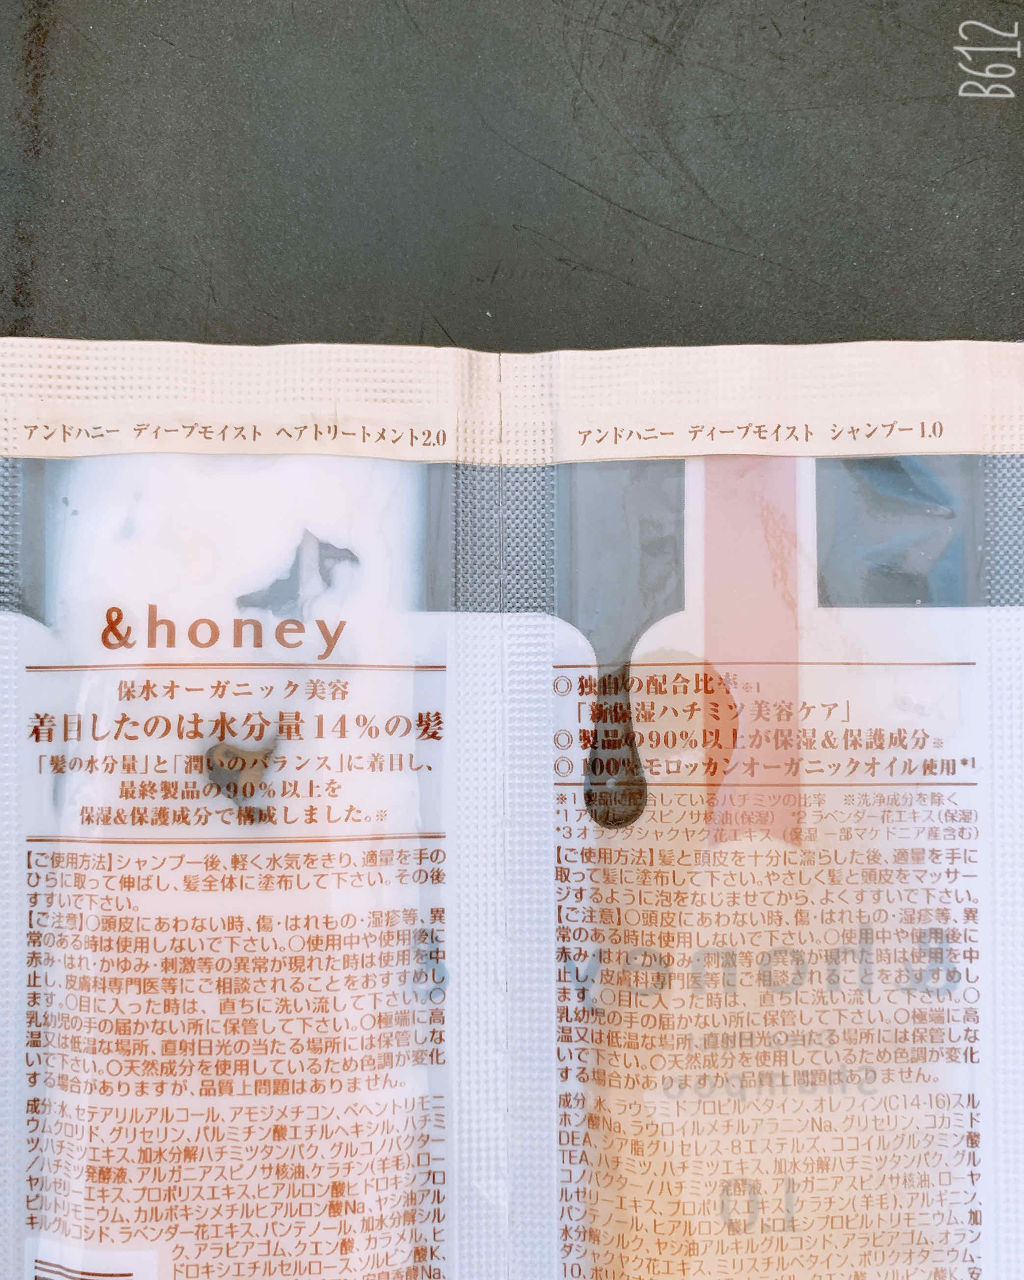 B612
アンドハニー ディープモイスト ヘアトリートメント2.0
&honey
保水オーガニック美容
着目したのは水分量14%の髪
「髪の水分量」と「潤いのバランス」に着目し、
最終製品の90%以上を
保湿&保護成分で構成しました。※
【ご使用方法】シャンプー後、軽く水気をきり、適量を手の
ひらに取って伸ばし、髪全体に塗布して下さい。その後
すすいで下さい。
【ご注意】〇頭皮にあわない時、傷・はれもの・湿疹等、異
常のある時は使用しないで下さい。〇使用中や使用後に
赤み・はれ・かゆみ・刺激等の異常が現れた時は使用を中
止し、皮膚科専門医等にご相談されることをおすすめし
ます。〇目に入った時は、直ちに洗い流して下さい。〇
乳幼児の手の届かない所に保管して下さい。〇極端に高
温又は低温な場所、直射日光の当たる場所には保管しな
いで下さい。〇天然成分を使用しているため色調が変化
する場合がありますが、品質上問題はありません。
成分:水、セテアリルアルコール、アモジメチコン、ベヘントリモニ
ウムクロリド、グリセリン、パルミチン酸エチルヘキシル、ハチミ
ツ、ハチミツエキス、加水分解ハチミツタンパク、グルコノバクター
/ハチミツ発酵液、アルガニアスピノサ核油、ケラチン(羊毛)、ロー
ヤルゼリーエキス、プロポリスエキス、ヒアルロン酸ヒドロキシプロ
ピルトリモニウム、カルボキシメチルヒアルロン酸Na、ヤシ油アル
キルグルコシド、ラベンダー花エキス、パンテノール、加水分解シル
ク、アラビアゴム、クエン酸、カラメル、ヒ
ドロキシエチルセルロース、ソルビン酸K、
安息香酸Na、
アンドハニー ディープモイスト シャンプー1.0
◎独自の配合比率※1
「新保湿ハチミツ美容ケア」
◎製品の90%以上が保湿&保護成分※
◎100%モロッカンオーガニックオイル使用*1
※1 製品に配合しているハチミツの比率 ※洗浄成分を除く
*1 アルガニアスピノサ核油(保湿) *2 ラベンダー花エキス(保湿)
*3 オランダシャクヤク花エキス(保湿 一部マケドニア産含む)
【ご使用方法】髪と頭皮を十分に濡らした後、適量を手に
取って髪に塗布して下さい。やさしく髪と頭皮をマッサー
ジするように泡をなじませてから、よくすすいで下さい。
【ご注意】〇頭皮にあわない時、傷・はれもの・湿疹等、異
常のある時は使用しないで下さい。〇使用中や使用後に
赤み・はれ・かゆみ・刺激等の異常が現れた時は使用を中
止し、皮膚科専門医等にご相談されることをおすすめし
ます。〇目に入った時は、直ちに洗い流して下さい。〇
乳幼児の手の届かない所に保管して下さい。〇極端に高
温又は低温な場所、直射日光の当たる場所には保管しな
いで下さい。〇天然成分を使用しているため色調が変化
する場合がありますが、品質上問題はありません。
成分:水、ラウラミドプロピルベタイン、オレフィン(C14-16)スル
ホン酸Na、ラウロイルメチルアラニンNa、グリセリン、コカミド
DEA、シア脂グリセレス-8エステルズ、ココイルグルタミン酸
TEA、ハチミツ、ハチミツエキス、加水分解ハチミツタンパク、グル
コノバクター/ハチミツ発酵液、アルガニアスピノサ核油、ローヤ
ルゼリーエキス、プロポリスエキス、ケラチン(羊毛)、アルギニン、
パンテノール、ヒアルロン酸ヒドロキシプロピルトリモニウム、加
水分解シルク、ヤシ油アルキルグルコシド、アラビアゴム、オラン
ダシャクヤク花エキス、ミリスチルベタイン、ポリクオタニウム-
10、